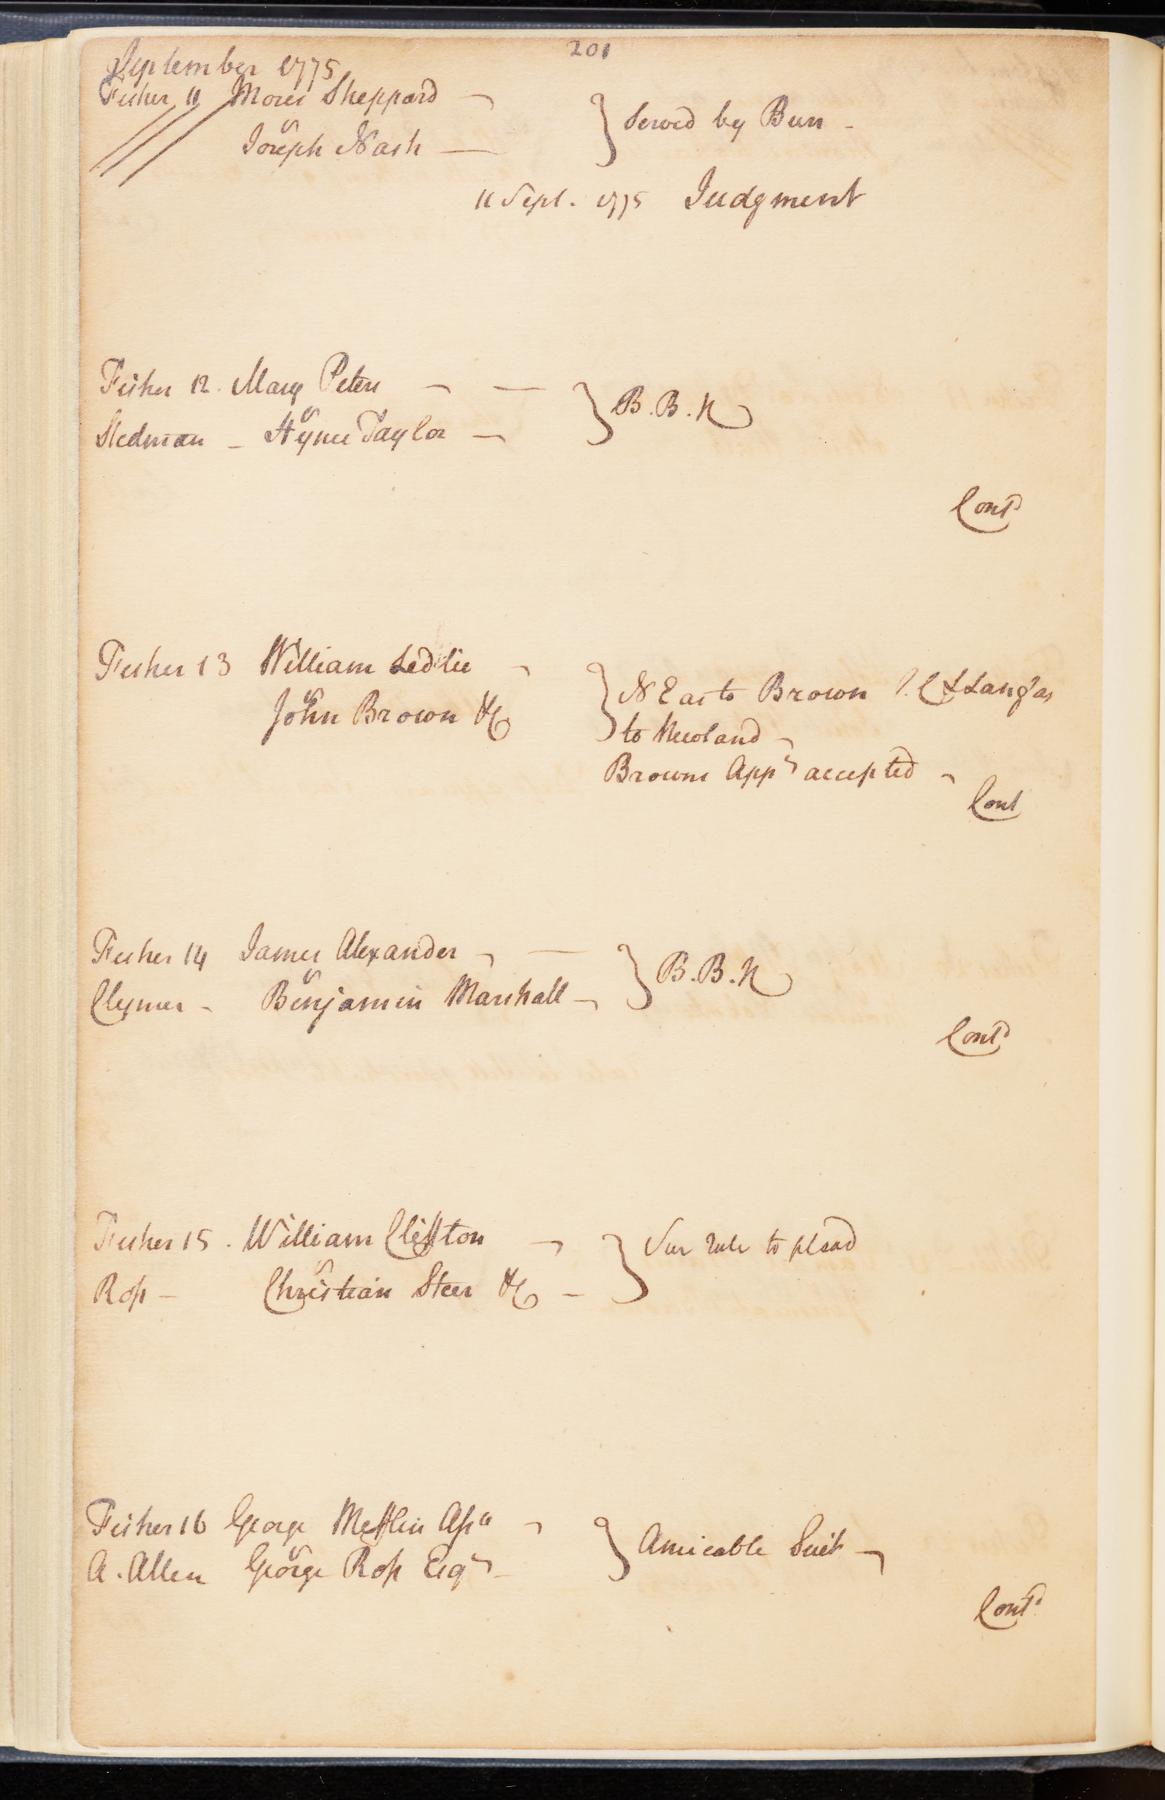 201
September 1775
Fisher 11 Moses Sheppard
vs
Joseph Nash
Served by Bun
11 Sept. 1775 Judgment
Fisher 12. Mary Peters
vs
Stedman - Hynee Taylor
B.B.N
Contd
Fisher 13 William Ledlie
vs
John Brown &c
N E as to Brown & Langs as
to Newland
Browns Appe accepted
Cont
Fisher 14 James Alexander
vs
Clymer - Benjamin Marshall
B.B.N
Contd
Fisher 15. William Clifton
vs
Ross - Christian Steer &c
Sur rule to plead
Fisher 16 George Mefflin Assee
vs
A. Allen George Ross Esqr
Amicable Suit
Contd